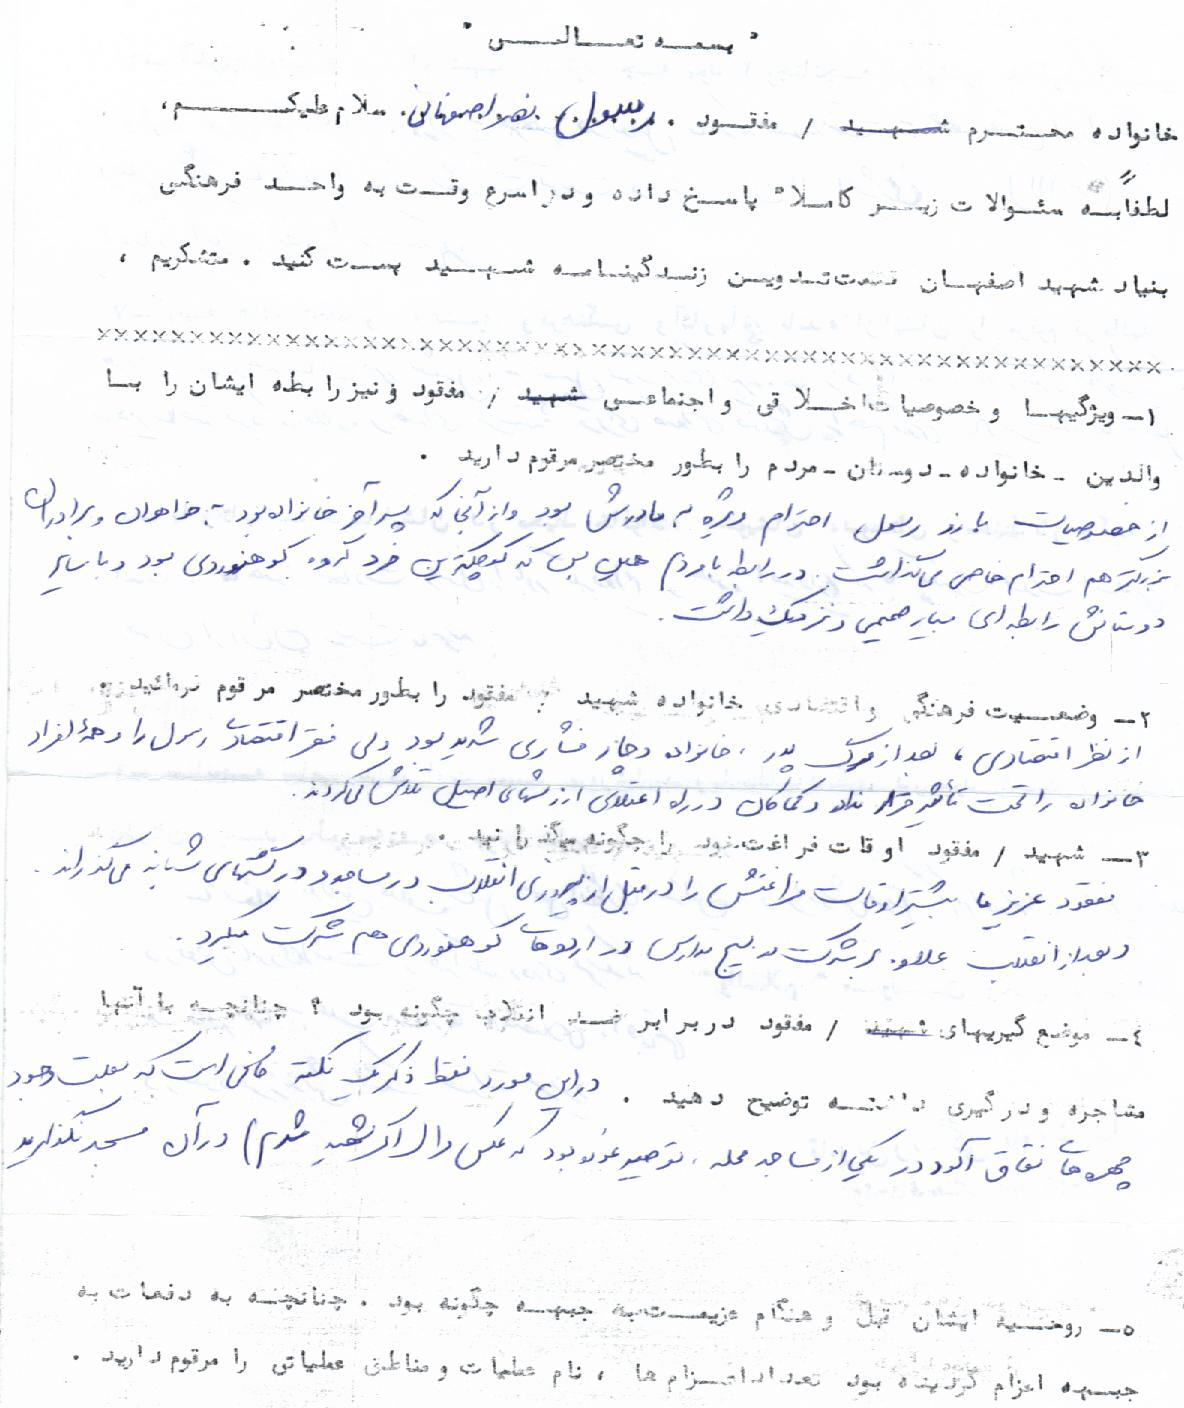 " بسمه تعالی "
خانواده محترم شهید / مفقود . رسول نصر اصفهانی . سلام علیکم ،
لطفاً به سئوالات زیر کاملا" پاسخ داده و در اسرع وقت به واحد فرهنگی
بنیاد شهید اصفهان تدوین زندگینامه شهید پست کنید . متشکریم ،
××××××××××××××××××××××××××××××××××××××××××××××××××××××××
۱- ویژگیها و خصوصیات اخلاقی و اجتماعی شهید / مفقود و نیز رابطه ایشان را با
والدین - خانواده - دوستان - مردم را بطور مختصر مرقوم دارید .
از خصوصیات بارز رسول احترام ویژه به مادرش بود و از آنجا که پسر آخر خانواده بود به خواهران و برادران
بزرگتر هم احترام خاصی می‌گذاشت . در رابطه با مردم همین بس که کوچکترین فرد گروه کوهنوردی بود و با سایر
دوستانش رابطه‌ای بسیار صمیمی و نزدیک داشت .
۲- وضعیت فرهنگی و اقتصادی خانواده شهید / مفقود را بطور مختصر مرقوم فرمائید .
از نظر اقتصادی ، بعد از مرگ پدر ، خانواده دچار فشاری شدید بود ولی فقر اقتصادی رسول را و همهٔ افراد
خانواده را تحت تأثیر قرار نداد و کماکان در راه اعتلای ارزشهای اصیل تلاش می‌کردند .
۳- شهید / مفقود اوقات فراغت خود را چگونه میگذرانید .
مفقود عزیز ما بیشتر اوقات فراغتش را در قبل از پیروزی انقلاب در مساجد و در گشتهای شبانه می‌گذراند .
و بعد از انقلاب علاوه بر شرکت در بسیج مدارس در اردوهای کوهنوردی هم شرکت میکرد .
٤- موضع گیریهای شهید / مفقود در برابر ضد انقلاب چگونه بود ؟ چنانچه با آنها
مشاجره و درگیری داشته توضیح دهید . در این مورد فقط ذکر یک نکته کافی است که بعلت وجود
چهره‌های نفاق آلود در یکی از مساجد محله ، توصیه نموده بود که عکس مرا ( اگر شهید شدم ) در آن مسجد نگذارید
٥- روحیه ایشان قبل و هنگام عزیمت به جبهه چگونه بود . چنانچه به دفعات به
جبهه اعزام گردیده بود تعداد اعزام ها ، نام عملیات و مناطق عملیاتی را مرقوم دارید .